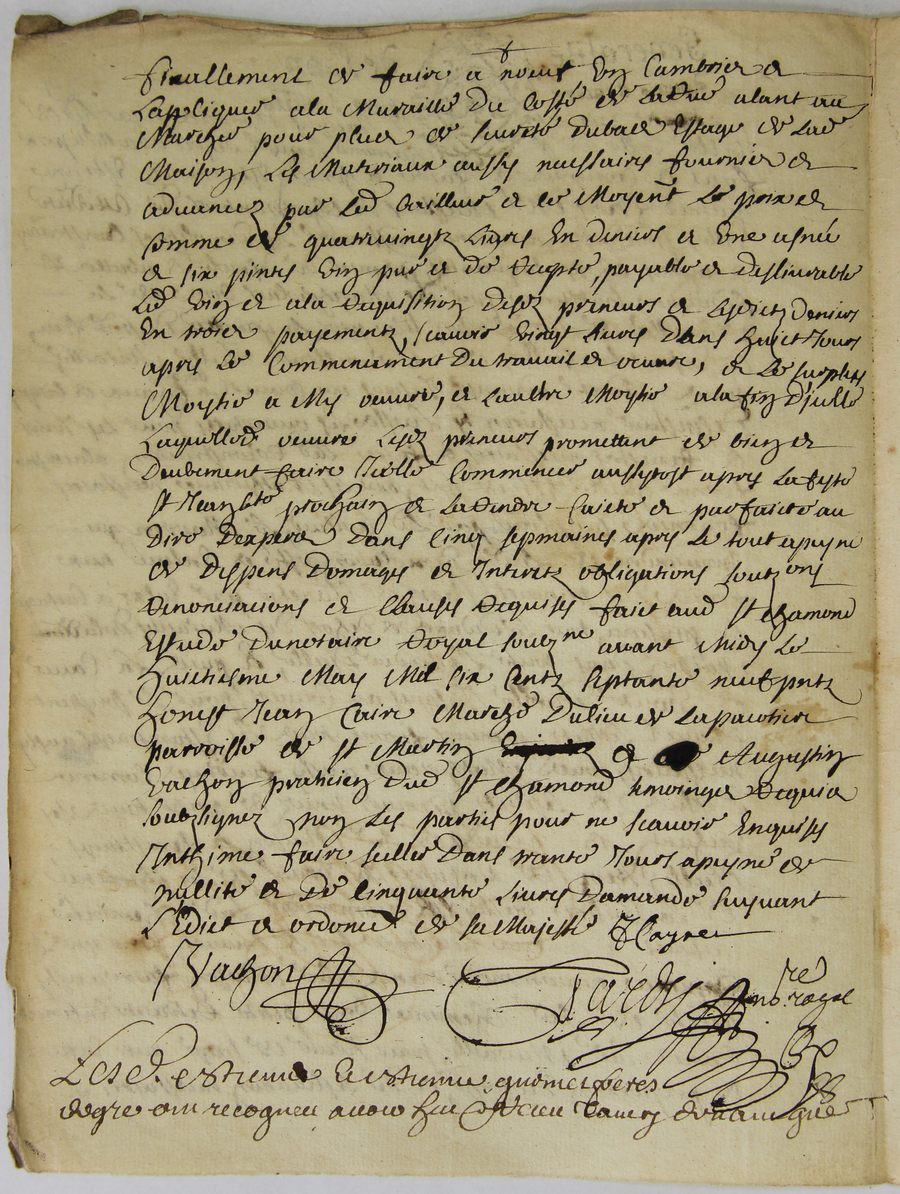 finallement de faire a neuf un cambrier
l'appliquer a la Muraille du Costé de la Rue alant au
Marché pour plus de sureté du bas Estage de lad
Maison, les Materiaux aussy necessaires fournier et
advancez par led bailleur et ce Moyent le prix et
somme de quatrevingtz Livres En deniers et Une asnée
et six pintes vin pur et de Recepte, payable et deslivrable
Led vin a la Requisition desd preneurs et lesdictz deniers
En trois payementz, scavoir vingt livres Dans huict Jours
apres le Commencement du travail et oeuvre, et le surplus
Moytié a My oeuvre, et l'aultre Moytié a la fin d'jcelle
Laquelle oeuvre Lesd preneurs promettent de bien et
Deubement faire Jcelle Commencer aussytost apres la feste
St Jean bte prochain et la Rendre faicte et parfaicte au
Dire D'expers Dans cinq sepmaines apres le tout a peyne
de Despens Domages et Interetz obligations soubz ons
Renonciations et Clauses Requises faict aud St chamond
Estude du notaire Royal soubz ne avant Midy Le
Huictiesme May Mil six Centz septante neuf pntz
honest Jean Caire March du lieu de la pacotiere
parroisse de St Martin et Augustin
vachon praticien dud St chamond tmoingz Requis
soubzsignez non les parties pour ne scavoir Enquises
Inthimé faire seeller Dans trante Jours a peyne de
nullité et De Cinquante Livres D'amande suyvant
L'Edict et ordonnce de sa Majesté
JVachon Tardy no.re royal
Lesd. estienne et estienne freres
de gre ont recogneu avoir heu et receu